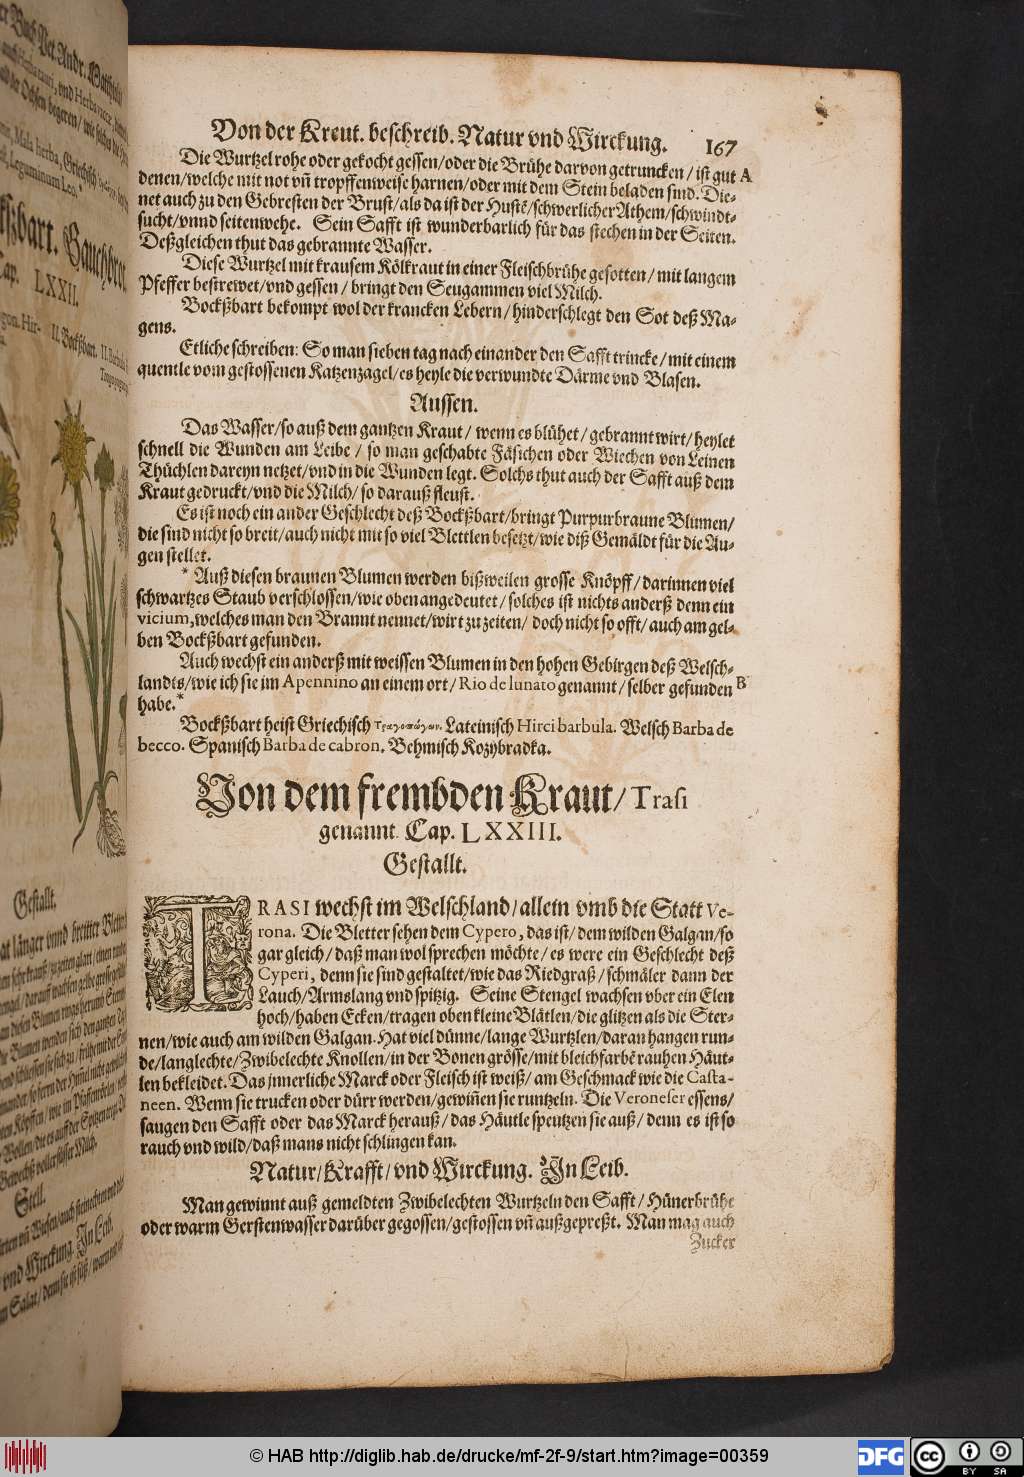 Von der Kreut. beschreib. Natur vnd Wirckung. 167
Die Wurtzel rohe oder gekocht gessen/oder die Brühe darvon getruncken/ist gut A
denen/welche mit not vñ tropffenweise harnen/oder mit dem Stein beladen sind. Die-
net auch zu den Gebresten der Brust/als da ist der Hustẽ/schwerlicher Athem/schwindt-
sucht/vnnd seitenwehe. Sein Safft ist wunderbarlich für das stechen in der Seiten.
Deßgleichen thut das gebrannte Wasser.
Diese Wurtzel mit krausem Kölkraut in einer Fleischbrühe gesotten/mit langem
Pfeffer bestrewet/vnd gessen/bringt den Seugammen viel Milch.
Bockßbart bekompt wol der krancken Lebern/hinderschlegt den Sot deß Ma-
gens.
Etliche schreiben: So man sieben tag nach einander den Safft trincke/mit einem
quentle vom gestossenen Katzenzagel/es heyle die verwundte Därme vnd Blasen.
Aussen.
Das Wasser/so auß dem gantzen Kraut/wenn es blühet/gebrannt wirt/heylet
schnell die Wunden am Leibe/so man geschabte Fäsichen oder Wiechen von Leinen
Thüchlen dareyn netzet/vnd in die Wunden legt. Solchs thut auch der Safft auß dem
Kraut gedruckt/vnd die Milch/so darauß fleust.
Es ist noch ein ander Geschlecht deß Bockßbart/bringt Purpurbraune Blumen/
die sind nicht so breit/auch nicht mit so viel Blettlen besetzt/wie diß Gemäldt für die Au-
gen stellet.
* Auß diesen braunen Blumen werden bißweilen grosse Knöpff/darinnen viel
schwartzes Staub verschlossen/wie oben angedeutet/solches ist nichts anderß denn ein
vicium,welches man den Brannt nennet/wirt zu zeiten/doch nicht so offt/auch am gel-
ben Bockßbart gefunden.
Auch wechst ein anderß mit weissen Blumen in den hohen Gebirgen deß Welsch-
landts/wie ich sie im Apennino an einem ort/Rio de lunato genannt/selber gefunden B
habe.*
Bockßbart heist Griechisch Τραγοπώγων. Lateinisch Hirci barbula. Welsch Barba de
becco. Spanisch Barba de cabron. Behmisch Kozybradka.
Von dem frembden Kraut/Trasi
genannt. Cap. LXXIII.
Gestallt.
TRASI wechst im Welschland/allein vmb die Statt Ve-
rona. Die Bletter sehen dem Cypero, das ist/dem wilden Galgan/so
gar gleich/daß man wol sprechen möchte/es were ein Geschlecht deß
Cyperi, denn sie sind gestaltet/wie das Riedgraß/schmäler dann der
Lauch/Armslang vnd spitzig. Seine Stengel wachsen vber ein Elen
hoch/haben Ecken/tragen oben kleine Blätlen/die glitzen als die Ster-
nen/wie auch am wilden Galgan. Hat viel dünne/lange Wurtzlen/daran hangen run-
de/langlechte/Zwibelechte Knollen/in der Bonen grösse/mit bleichfarbẽ rauhen Häut-
len bekleidet. Das jnnerliche Marck oder Fleisch ist weiß/am Geschmack wie die Casta-
neen. Wenn sie trucken oder dürr werden/gewiñen sie runtzeln. Die Veroneser essens/
saugen den Safft oder das Marck herauß/das Häutle speutzen sie auß/denn es ist so
rauch vnd wild/daß mans nicht schlingen kan.
Natur/Krafft/vnd Wirckung. In Leib.
Man gewinnt auß gemeldten Zwibelechten Wurtzeln den Safft/Hünerbrühe
oder warm Gerstenwasser darüber gegossen/gestossen vñ außgepreßt. Man mag auch
Zucker
Cap. LXXII.
II. Bockßbart.
Gestallt.
Stell.
vnd Wirckung. In Leib.
© HAB http://diglib.hab.de/drucke/mf-2f-9/start.htm?image=00359
DFG
cc BY SA